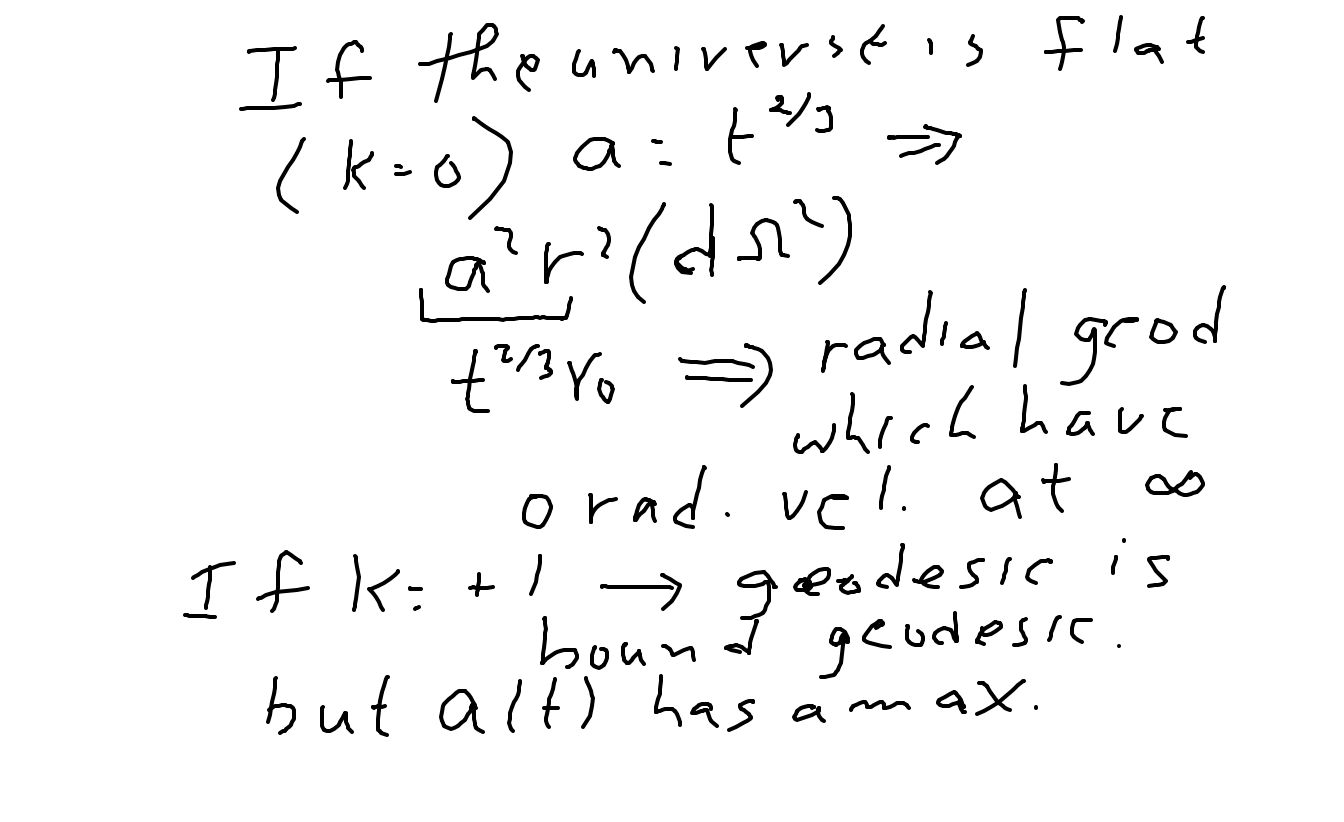 If the universe is flat
(k=0) a = t^{2/3} ⇒
a²r²(dΩ²)
t^{2/3}r₀ ⇒ radial geod
which have
0 rad. vel. at ∞
If k=+1 → geodesic is
bound geodesic.
but a(t) has a max.